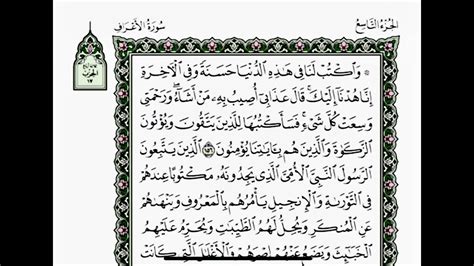 الجُزْءُ التَّاسِعُ
سُورَةُ الأَعْرَافِ
۞ وَٱكْتُبْ لَنَا فِي هَٰذِهِ ٱلدُّنْيَا حَسَنَةً وَفِي ٱلْأٓخِرَةِ
إِنَّا هُدْنَآ إِلَيْكَۚ قَالَ عَذَابِيٓ أُصِيبُ بِهِۦ مَنْ أَشَآءُۖ وَرَحْمَتِي
وَسِعَتْ كُلَّ شَيْءٍۚ فَسَأَكْتُبُهَا لِلَّذِينَ يَتَّقُونَ وَيُؤْتُونَ
ٱلزَّكَوٰةَ وَٱلَّذِينَ هُم بِـَٔايَٰتِنَا يُؤْمِنُونَ ١٥٦ ٱلَّذِينَ يَتَّبِعُونَ
ٱلرَّسُولَ ٱلنَّبِيَّ ٱلْأُمِّيَّ ٱلَّذِي يَجِدُونَهُۥ مَكْتُوبًا عِندَهُمْ
فِي ٱلتَّوْرَىٰةِ وَٱلْإِنجِيلِ يَأْمُرُهُم بِٱلْمَعْرُوفِ وَيَنْهَىٰهُمْ
عَنِ ٱلْمُنكَرِ وَيُحِلُّ لَهُمُ ٱلطَّيِّبَٰتِ وَيُحَرِّمُ عَلَيْهِمُ
ٱلْخَبَٰٓئِثَ وَيَضَعُ عَنْهُمْ إِصْرَهُمْ وَٱلْأَغْلَٰلَ ٱلَّتِي كَانَتْ